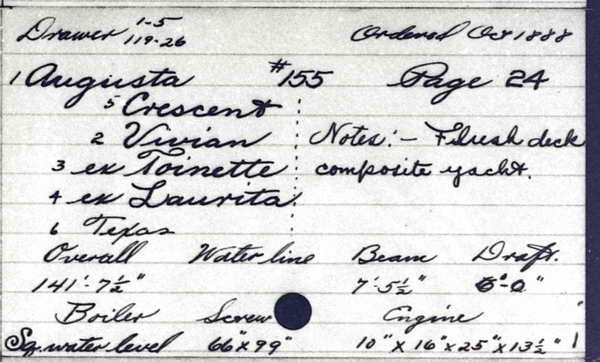 Drawer 1-5 119-26 Ordered Oct 1888
1 Augusta #155 Page 24
5 Crescent
2 Vivian Notes:- Flush deck
3 ex Toinette composite yacht.
4 ex Laurita
6 Texas
Overall Water line Beam Draft.
141'-7½" 7'-5½" 6'-0"
Boiler Screw Engine
Sq. water level 66"x99" 10"x16"x25"x13½"